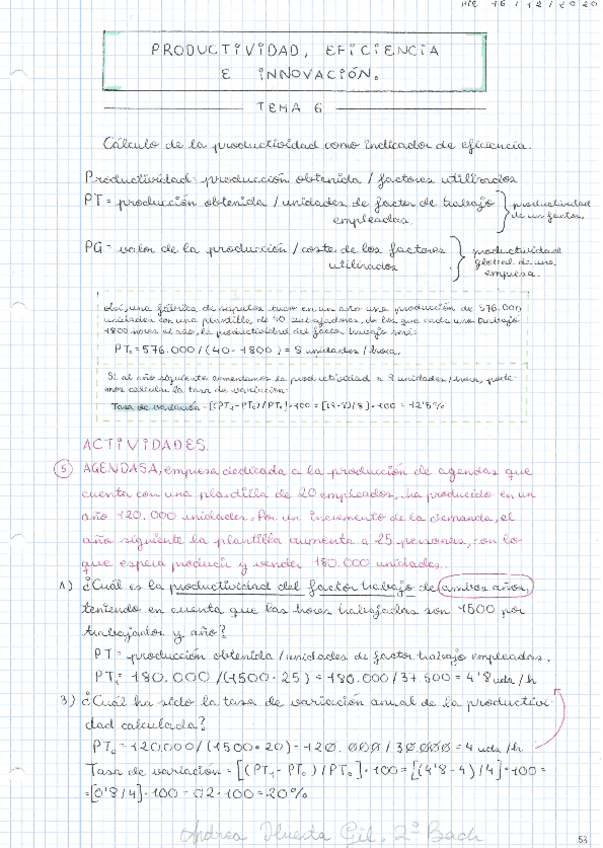 MIE 16/12/2020
PRODUCTIVIDAD, EFICIENCIA
E INNOVACIÓN.
TEMA 6
Cálculo de la productividad como indicador de eficiencia.
Productividad: producción obtenida / factores utilizados
PT = producción obtenida / unidades de factor de trabajo
empleadas.
productividad
de un factor.
PG = valor de la producción / coste de los factores
utilizados
productividad
global de una
empresa.
Así, una fábrica de zapatos tuvo en un año una producción de 576.000
unidades con una plantilla de 40 trabajadores, de los que cada uno trabajó
1800 horas al año, la productividad del factor trabajo será:
PT₀ = 576.000 / (40 · 1800) = 8 unidades / hora.
Si al año siguiente aumentamos la productividad a 9 unidades / hora, pode-
mos calcular la tasa de variación:
Tasa de variación = [(PT₁ - PT₀) / PT₀] · 100 = [(9-8)/8] · 100 = 12'5%
ACTIVIDADES.
5 AGENDASA, empresa dedicada a la producción de agendas que
cuenta con una plantilla de 20 empleados, ha producido en un
año 120.000 unidades. Por un incremento de la demanda, el
año siguiente la plantilla aumenta a 25 personas, con lo
que espera producir y vender 180.000 unidades.
1) ¿Cuál es la productividad del factor trabajo de ambos años,
teniendo en cuenta que las horas trabajadas son 1500 por
trabajador y año?
PT = producción obtenida / unidades de factor trabajo empleadas.
PT₁ = 180.000 / (1500 · 25) = 180.000 / 37.500 = 4'8 uds / h
3) ¿Cuál ha sido la tasa de variación anual de la productivi-
dad calculada?
PT₀ = 120.000 / (1500 · 20) = 120.000 / 30.000 = 4 uds / h.
Tasa de variación = [(PT₁ - PT₀) / PT₀] · 100 = [(4'8 - 4) / 4] · 100 =
= [0'8 / 4] · 100 = 0'2 · 100 = 20%
Andrea Huerta Gil. 2º Bach
53